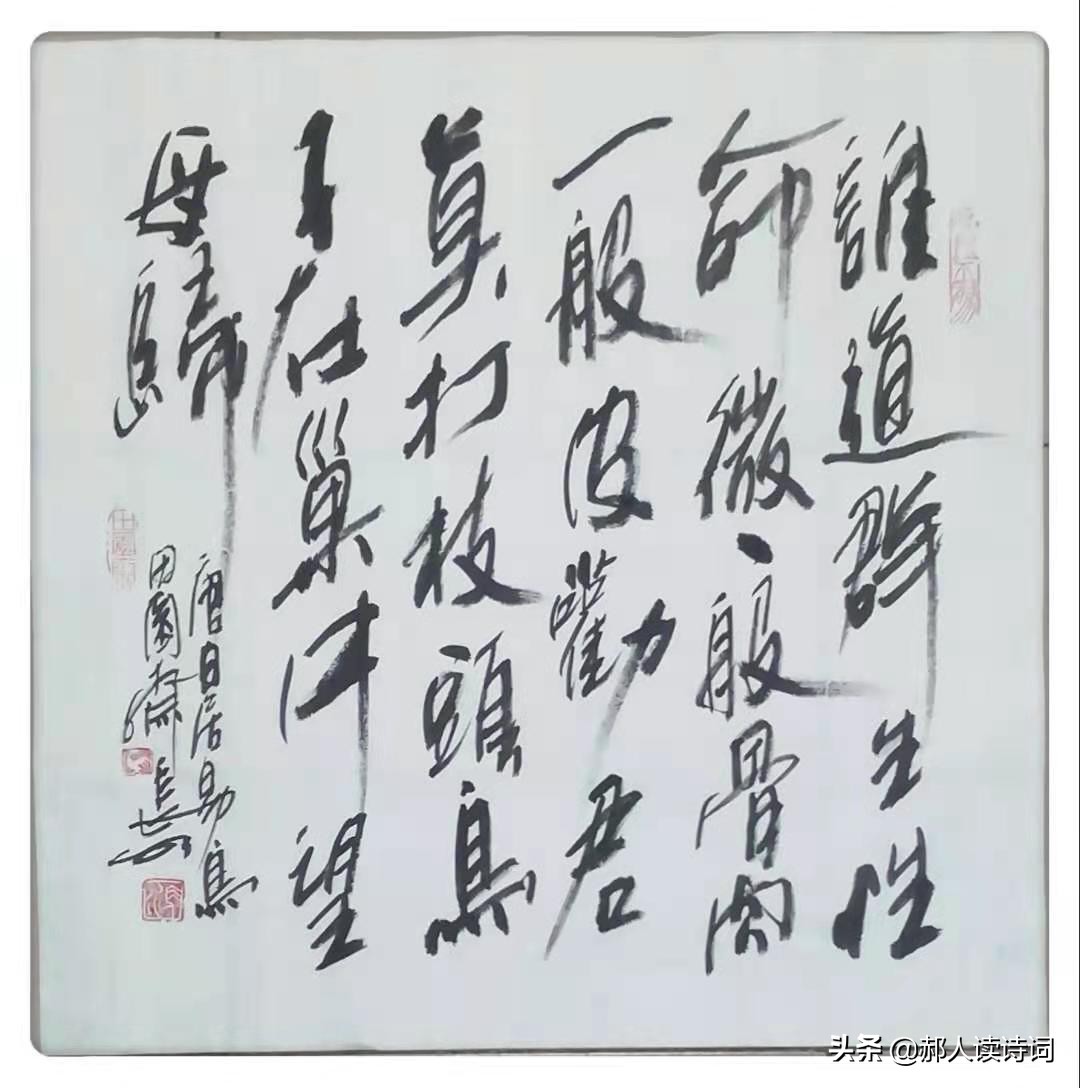 誰道群生性
命微一般骨肉
一般皮勸君
莫打枝頭鳥
子在巢中望
母歸
唐白居易鳥
田園齋
头条 @郝人读诗词